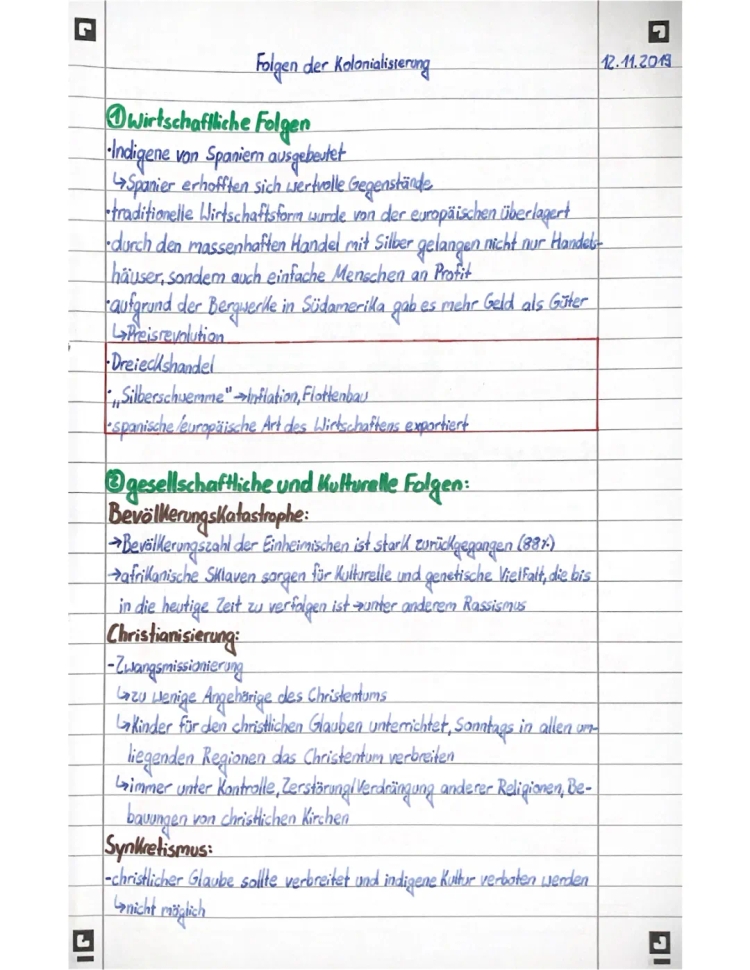 Folgen der Kolonialisierung 12.11.2019
① Wirtschaftliche Folgen
·Indigene von Spaniern ausgebeutet
↳Spanier erhofften sich wertvolle Gegenstände
·traditionelle Wirtschaftsform wurde von der europäischen überlagert
·durch den massenhaften Handel mit Silber gelangen nicht nur Handels-
häuser, sondern auch einfache Menschen an Profit
·aufgrund der Bergwerke in Südamerika gab es mehr Geld als Güter
↳Preisrevolution
·Dreieckshandel
·„Silberschwemme" →Inflation, Flottenbau
·spanische/europäische Art des Wirtschaftens exportiert
② gesellschaftliche und kulturelle Folgen:
Bevölkerungskatastrophe:
→Bevölkerungszahl der Einheimischen ist stark zurückgegangen (88%)
→afrikanische Sklaven sorgen für kulturelle und genetische Vielfalt, die bis
in die heutige Zeit zu verfolgen ist →unter anderem Rassismus
Christianisierung:
-Zwangsmissionierung
↳zu wenige Angehörige des Christentums
↳Kinder für den christlichen Glauben unterrichtet, Sonntags in allen um-
liegenden Regionen das Christentum verbreiten
↳immer unter Kontrolle, Zerstörung/Verdrängung anderer Religionen, Be-
bauungen von christlichen Kirchen
Synkretismus:
-christlicher Glaube sollte verbreitet und indigene Kultur verboten werden
↳nicht möglich